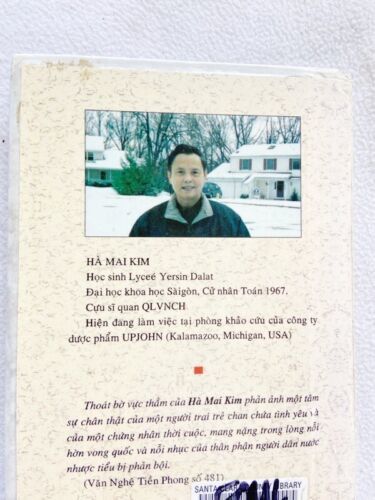 HÀ MAI KIM
Học sinh Lyceé Yersin Dalat
Đại học khoa học Sàigòn, Cử nhân Toán 1967.
Cựu sĩ quan QLVNCH
Hiện đang làm việc tại phòng khảo cứu của công ty
dược phẩm UPJOHN (Kalamazoo, Michigan, USA)
Thoát bờ vực thẳm của Hà Mai Kim phản ảnh một tâm
sự chân thật của một người trai trẻ chan chưa tình yêu và
của một chứng nhân thời cuộc, mang nặng trong lòng nỗi
hờn vong quốc và nỗi nhục của thân phận người dân nước
nhược tiểu bị phản bội.
(Văn Nghệ Tiền Phong số 481)
SANTA CLARA LIBRARY